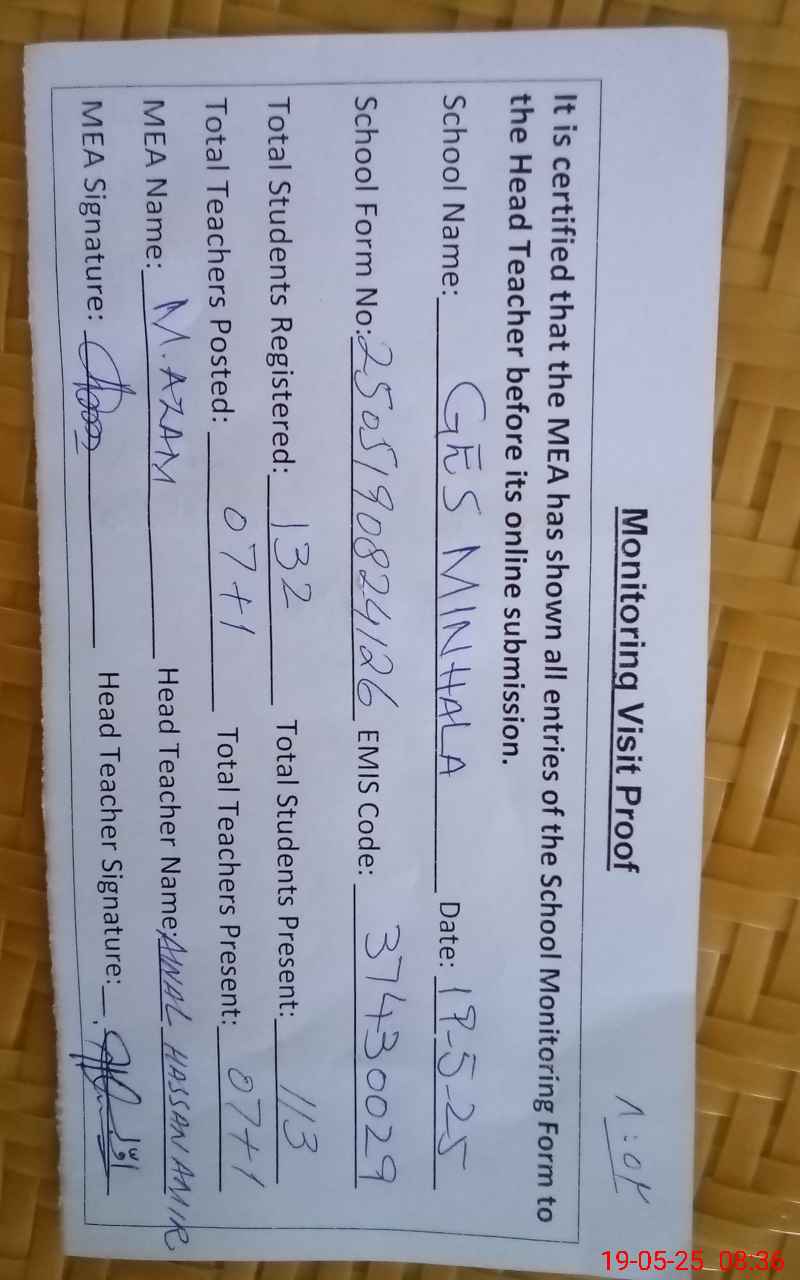 Monitoring Visit Proof
It is certified that the MEA has shown all entries of the School Monitoring Form to
the Head Teacher before its online submission.
School Name: GES MINHALA Date: 19-5-25
School Form No: 2505190824126 EMIS Code: 37430029
Total Students Registered: 132 Total Students Present: 113
Total Teachers Posted: 07+1 Total Teachers Present: 07+1
MEA Name: M. AZAM Head Teacher Name: AINAL HASSAN AMIR
MEA Signature: Head Teacher Signature:
19-05-25 08:36